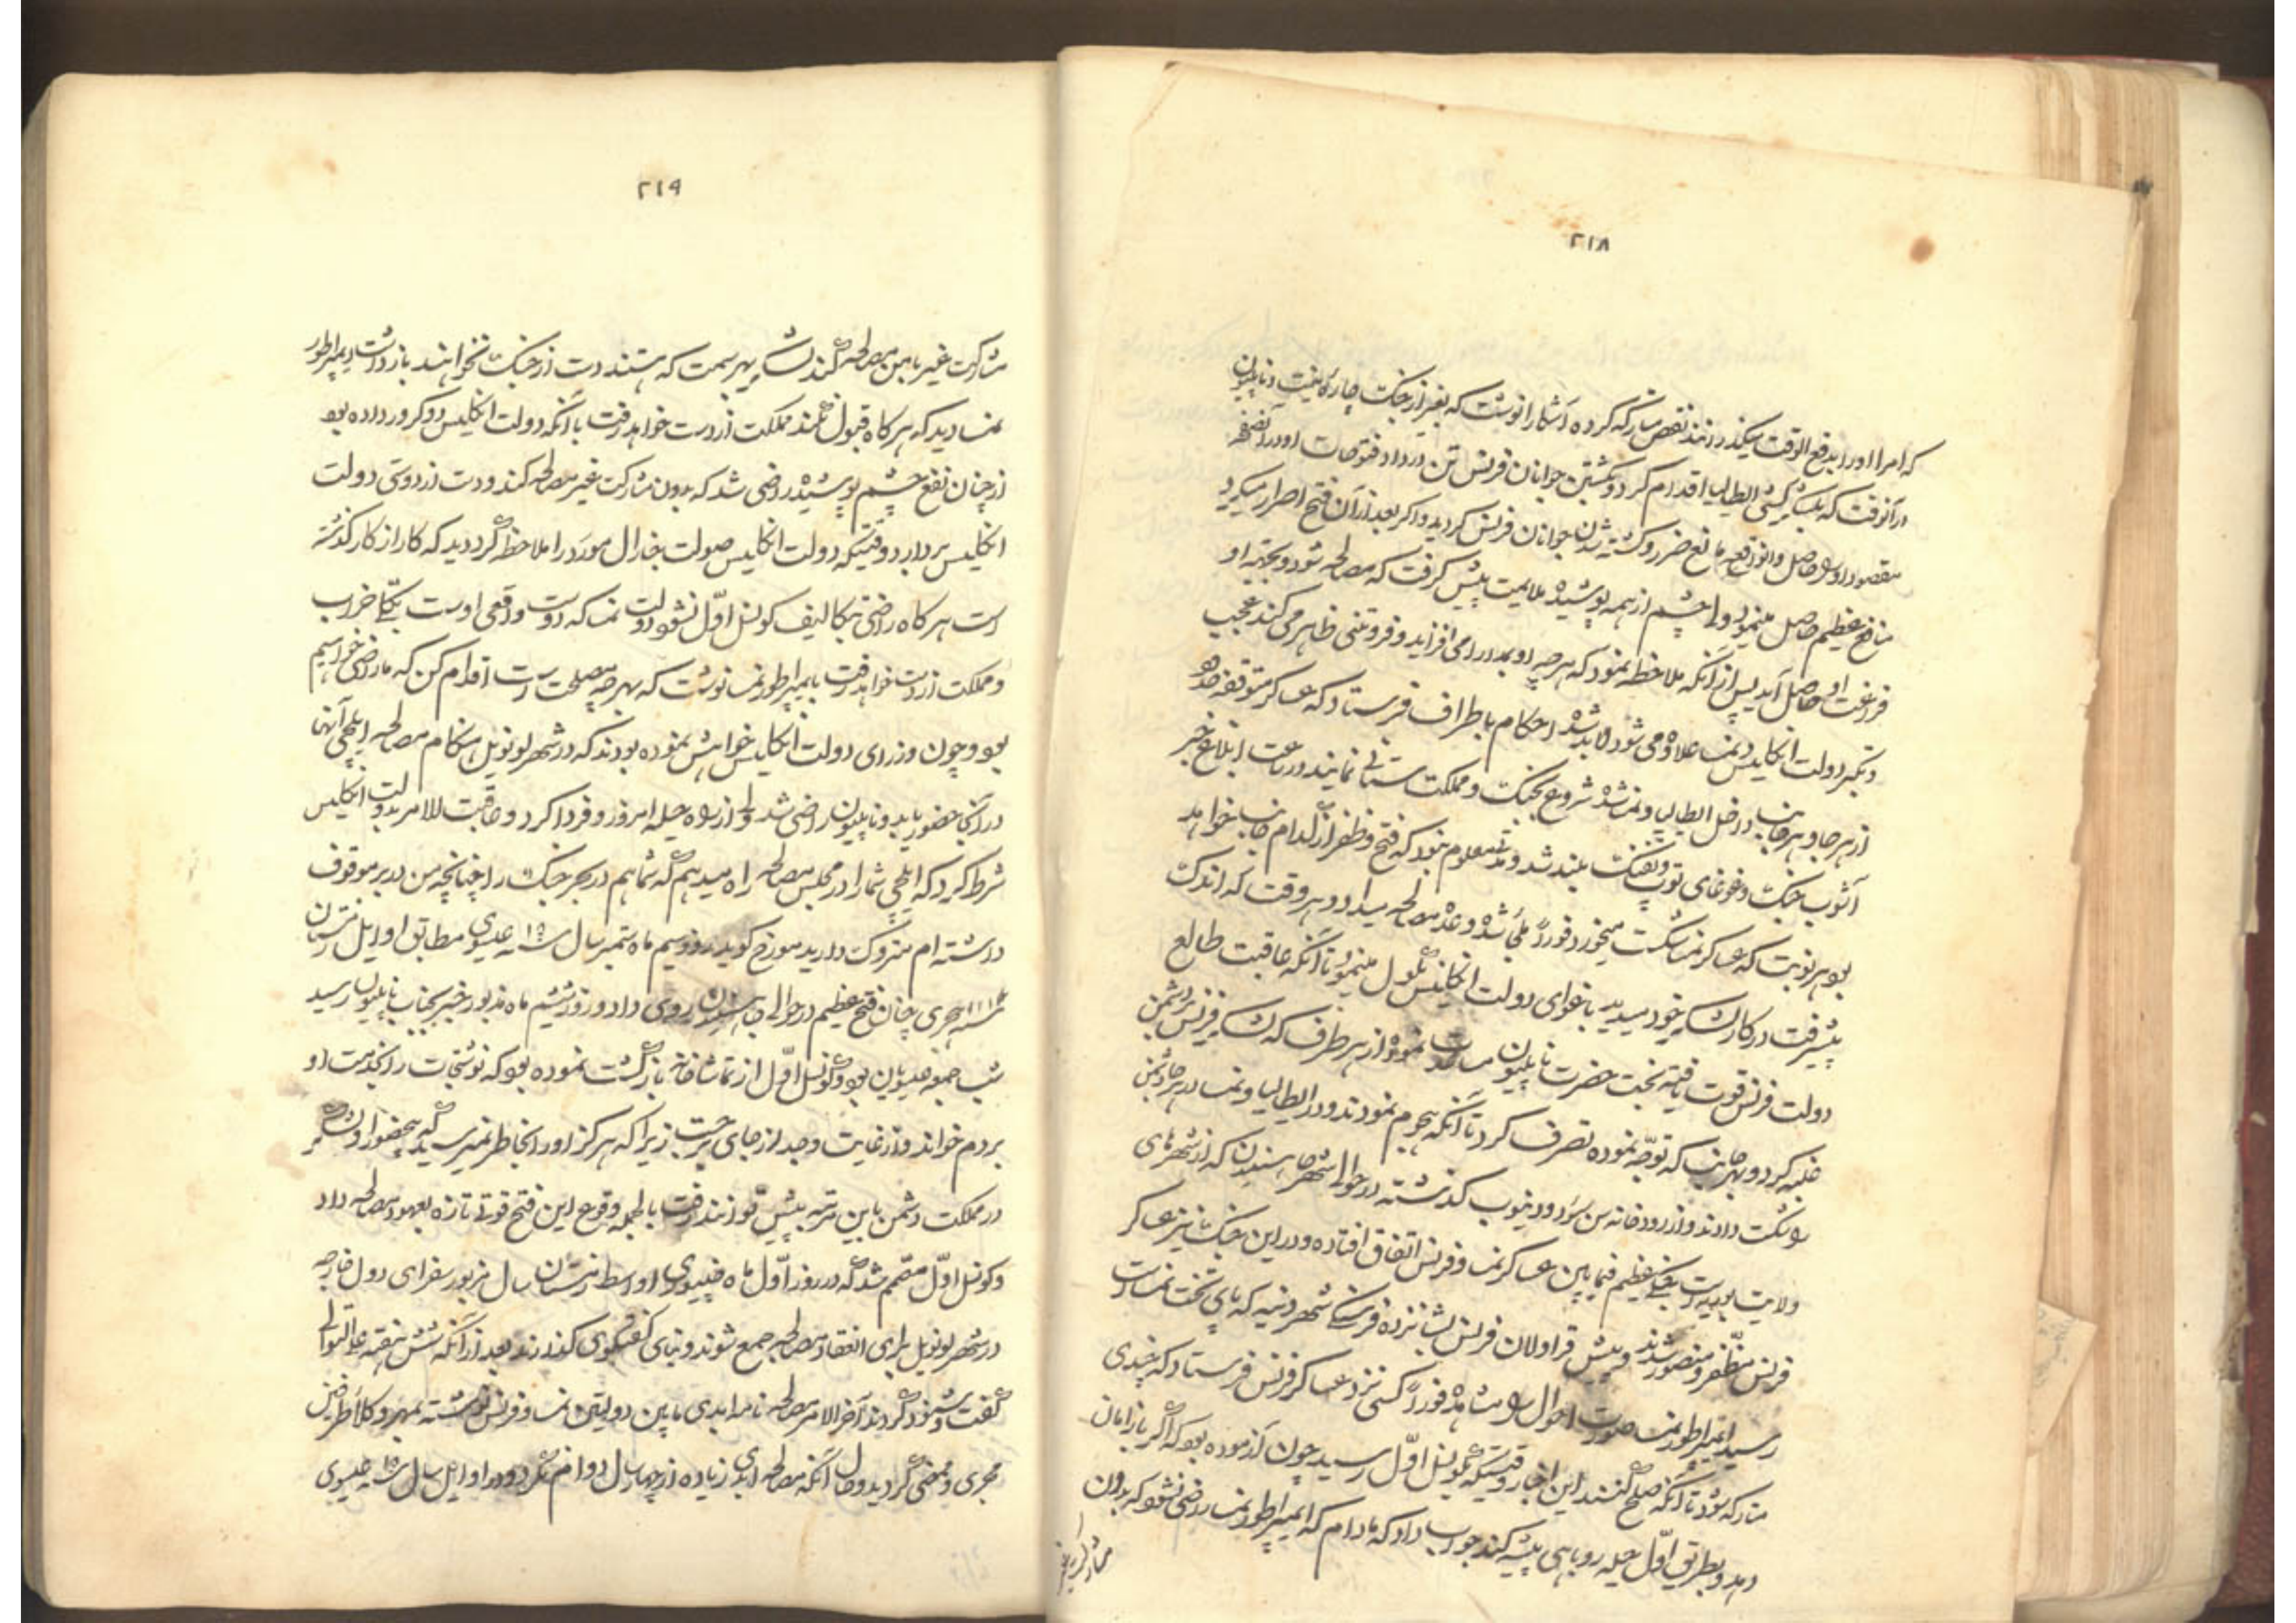 ۲۱۸
که امرا او را بدفع الوقت میگذرانند نقض متارکه کرده آشکارا نوشت که بغیر از جنگ چاره نیست و ناپلیون
در آنوقت که بلشکر کشی ایطالیا اقدام کرد و بکشتن جوانان فرنس تن در داد فتوحات او در آنصفحه
مقصود او را حاصل و انواقعه مانع ضرر و کشته شدن جوانان فرنس کردید و اکر بعد از آن فتح اصرار میکرد
منافع عظیم حاصل مینمود ولی چشم از همه پوشیده ملایمت پیش کرفت که مصالحه شود و بجهته او
فراغت حاصل آید پس از آنکه ملاحظه نمود که هر چه او بمدارا می افزاید و فروتنی ظاهر می کند عجب
و تکبر دولت انکلیس و نمسا علاوه می شود لابد شده احکام باطراف فرستاد که عساکر متوقفه
از هر جا و هر جانب داخل ایطالیا و نمسا شده شروع بجنگ و مملکت ستانی نمایند و ساعت ابلاغ خبر
آشوب جنگ و غوغای توپ و تفنگ بلند شد و معلوم نبود که فتح و ظفر از کدام جانب خواهد
بود هر نوبت که عساکر نمسا شکست میخورد فوراً ملجأ شده وعده مصالحه میداد و هر وقت که اندک
پیشرفت در کار لشکر خود میدید باغوای دولت انکلیس نکول مینمود تا آنکه عاقبت طالع
دولت فرنس قوت یافته بخت حضرت ناپلیون مساعدت نموده از هر طرف که لشکر فرنس بر دشمن
غلبه کرد و بهر جانب که توجه نموده تصرف کرد تا آنکه هجوم نمودند و در ایطالیا و نمسا در هر جا دشمن
را شکست دادند و از رودخانه من سو و دینوب کذشته در حوالی شهر هاسنیدن که از شهرهای
ولایت بویه است جنگی عظیم فیما بین عساکر نمسا و فرنس اتفاق افتاده و در این جنگ نیز عساکر
فرنس مظفر و منصور شدند و پیش قراولان فرنس بشانزده فرسخی شهر وینه که پای تخت نمسا است
رسید امپراطور نمسا صورت احوال را مشاهده فوراً کسی نزد عساکر فرنس فرستاد که چندی
متارکه شود تا آنکه صلح کنند این اخبار وقتیکه بکونسل اول رسید چون آزموده بود که اکر باز امان
دهد و بطریق اول حیله روباهی پیشه کند جواب داد که مادام که امپراطور نمسا راضی نشود که بدون
مشارکت غیر
۲۱۹
مشارکت غیر با من مصالحه کند لشکر بهر سمت که هستند دست از جنگ نخواهند باز داشت امپراطور
نمسا دید که هر کاه قبول نکند مملکت از دست خواهد رفت با آنکه دولت انکلیس دو کرور داده بود
از چنان نفع چشم پوشیده راضی شد که بدون مشارکت غیر مصالحه کند و دست از دوستی دولت
انکلیس بردارد وقتیکه دولت انکلیس صولت جنارال مورو را ملاحظه کرد دید که کار از کار کذشته
است هر کاه راضی بتکالیف کونسل اول نشود دولت نمسا که دوست واقعی اوست بکلی خراب
و مملکت از دست خواهد رفت بامپراطور نمسا نوشت که بهر چه مصلحت است اقدام کن که ما راضی خواهیم
بود و چون وزرای دولت انکلیس خواهش نموده بودند که در شهر لونویل هنکام مصالحه ایلچی آنها
در آنجا حضور یابد و ناپلیون راضی شد ولی از راه حیله امروز و فردا کرد و عاقبت الامر بدولت انکلیس
شرط کرد که ایلچی شما را در مجلس مصالحه راه میدهم که شما هم در بحر جنگ را چنانچه من در بر موقوف
داشته ام متروک دارید مورخ کوید روز سیم ماه دسمبر سال عیسوی مطابق اوایل زمستان
هجری چنان فتح عظیم در حوالی هاسنیدن روی داد و روز ششم ماه مذبور خبر بجناب ناپلیون رسید
شب جمعه عیسویان بود و کونسل اول از تماشاخانه بازکشت نموده بود که نوشتجات را بخدمت او
بردم خواند و از غایت وجد از جای برجست زیرا که هرکز او را بخاطر نمیرسید که بیحضور او لشکر
در مملکت دشمن باین مرتبه پیش توانند رفت بالجمله وقوع این فتح قوتی تازه بعهود مصالحه داد
و کونسل اول مصمم شد که در روز اول ماه عیسوی اواسط زمستان سال مزبور سفرای دول خارجه
در شهر لونویل برای انعقاد مصالحه جمع شوند و بنای کفتکوی کذارند بعد از آنکه شش هفته علی التوالی
کفت و شنود کردند آخر الامر مصالحه نامه ابدی مابین دولتین نمسا و فرنس نوشته بمهر وکلا طرفین
مجری و ممضی کردید و حال آنکه مصالحه ابدی زیاده از چهار سال دوام نکرد و در اوایل سال عیسوی